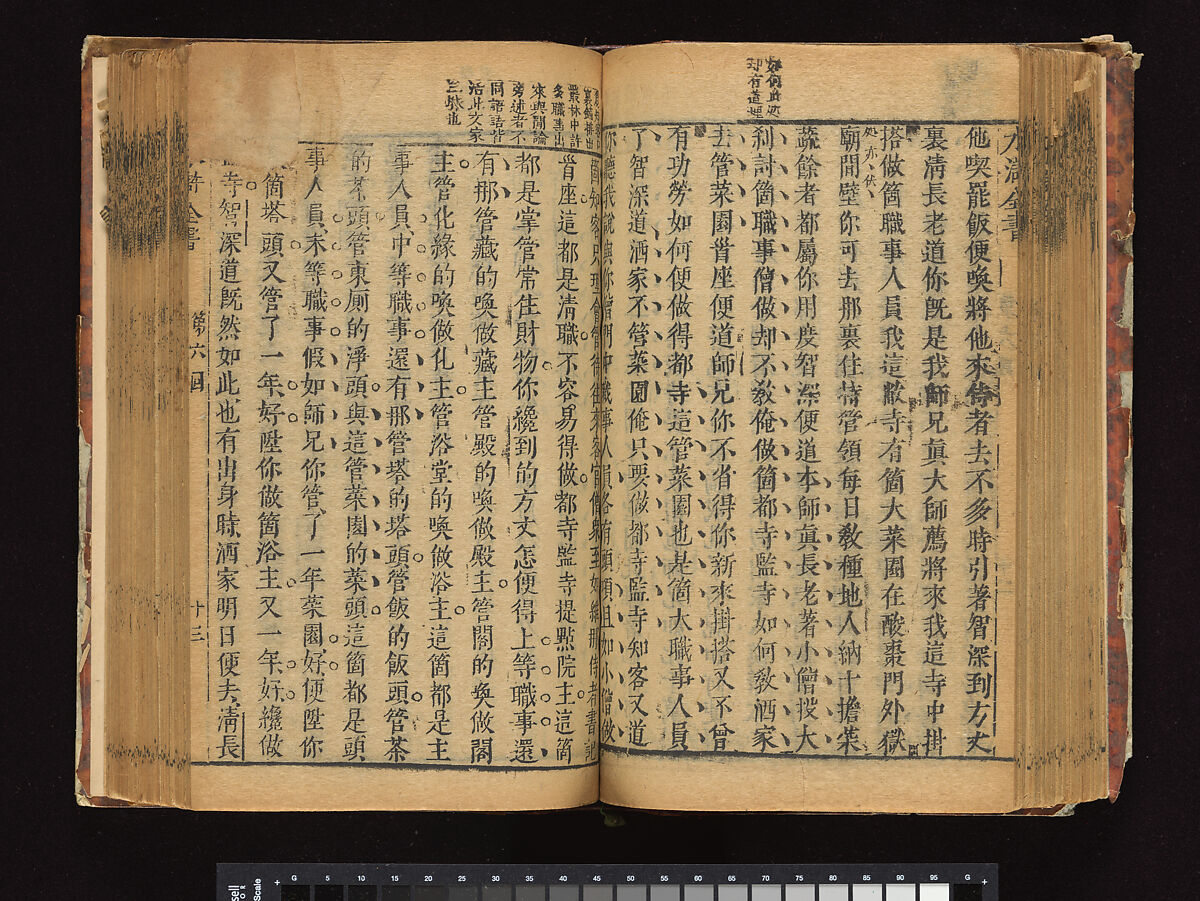 水滸全書
如何此處
却有道理
他喫罷飯便喚將他來侍者去不多時引著智深到方丈
裏清長老道你既是我師兄眞大師薦將來我這寺中掛
搭做箇職事人員我這敝寺有箇大菜園在酸棗門外嶽
廟間壁你可去那裏住持管領每日教種地人納十擔菜
蔬餘者都屬你用度智深便道本師眞長老著小僧投大
刹討箇職事僧做却不教俺做箇都寺監寺如何教洒家
去管菜園首座便道師兄你不省得你新來掛搭又不曾
有功勞如何便做得都寺這管菜園也是箇大職事人員
了智深道洒家不管菜園俺只要做都寺監寺知客又道
你聽我說與你僧門中職事人員各有頭項且如小僧做
裏鋪排出
叢林中許
多職事出
來與閒論
旁述者不
同語語皆
活此文家
三昧也
箇知客只理會管待往來客官僧衆至如維那侍者書記
首座這都是清職不容易得做都寺監寺提點院主這箇
都是掌管常住財物你纔到的方丈怎便得上等職事還
有那管藏的喚做藏主管殿的喚做殿主管閣的喚做閣
主管化緣的喚做化主管浴堂的喚做浴主這箇都是主
事人員中等職事還有那管塔的塔頭管飯的飯頭管茶
的茶頭管東厠的淨頭與這管菜園的菜頭這箇都是頭
事人員末等職事假如師兄你管了一年菜園好便陞你
箇塔頭又管了一年好陞你做箇浴主又一年好纔做
寺智深道既然如此也有出身時洒家明日便去清長
滸全書 第六回 十三
G 5 10 15 20 25 30 35 40 45 50 55 60 65 70 75 80 85 90 95 G